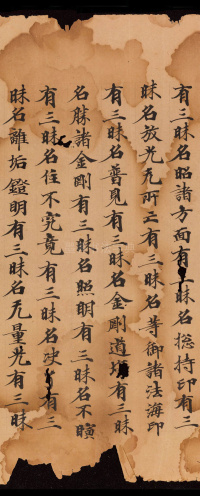 有三昧名昭諸方面有昧名捴持印有三
昧名放光无所亡有三昧名等御諸法海印
有三昧名普見有三昧名金剛道有三昧
名勝諸金剛有三昧名照明有三昧名不瞚
有三昧名住不究竟有三昧名決有三
昧名離垢鐙明有三昧名无量光有三昧